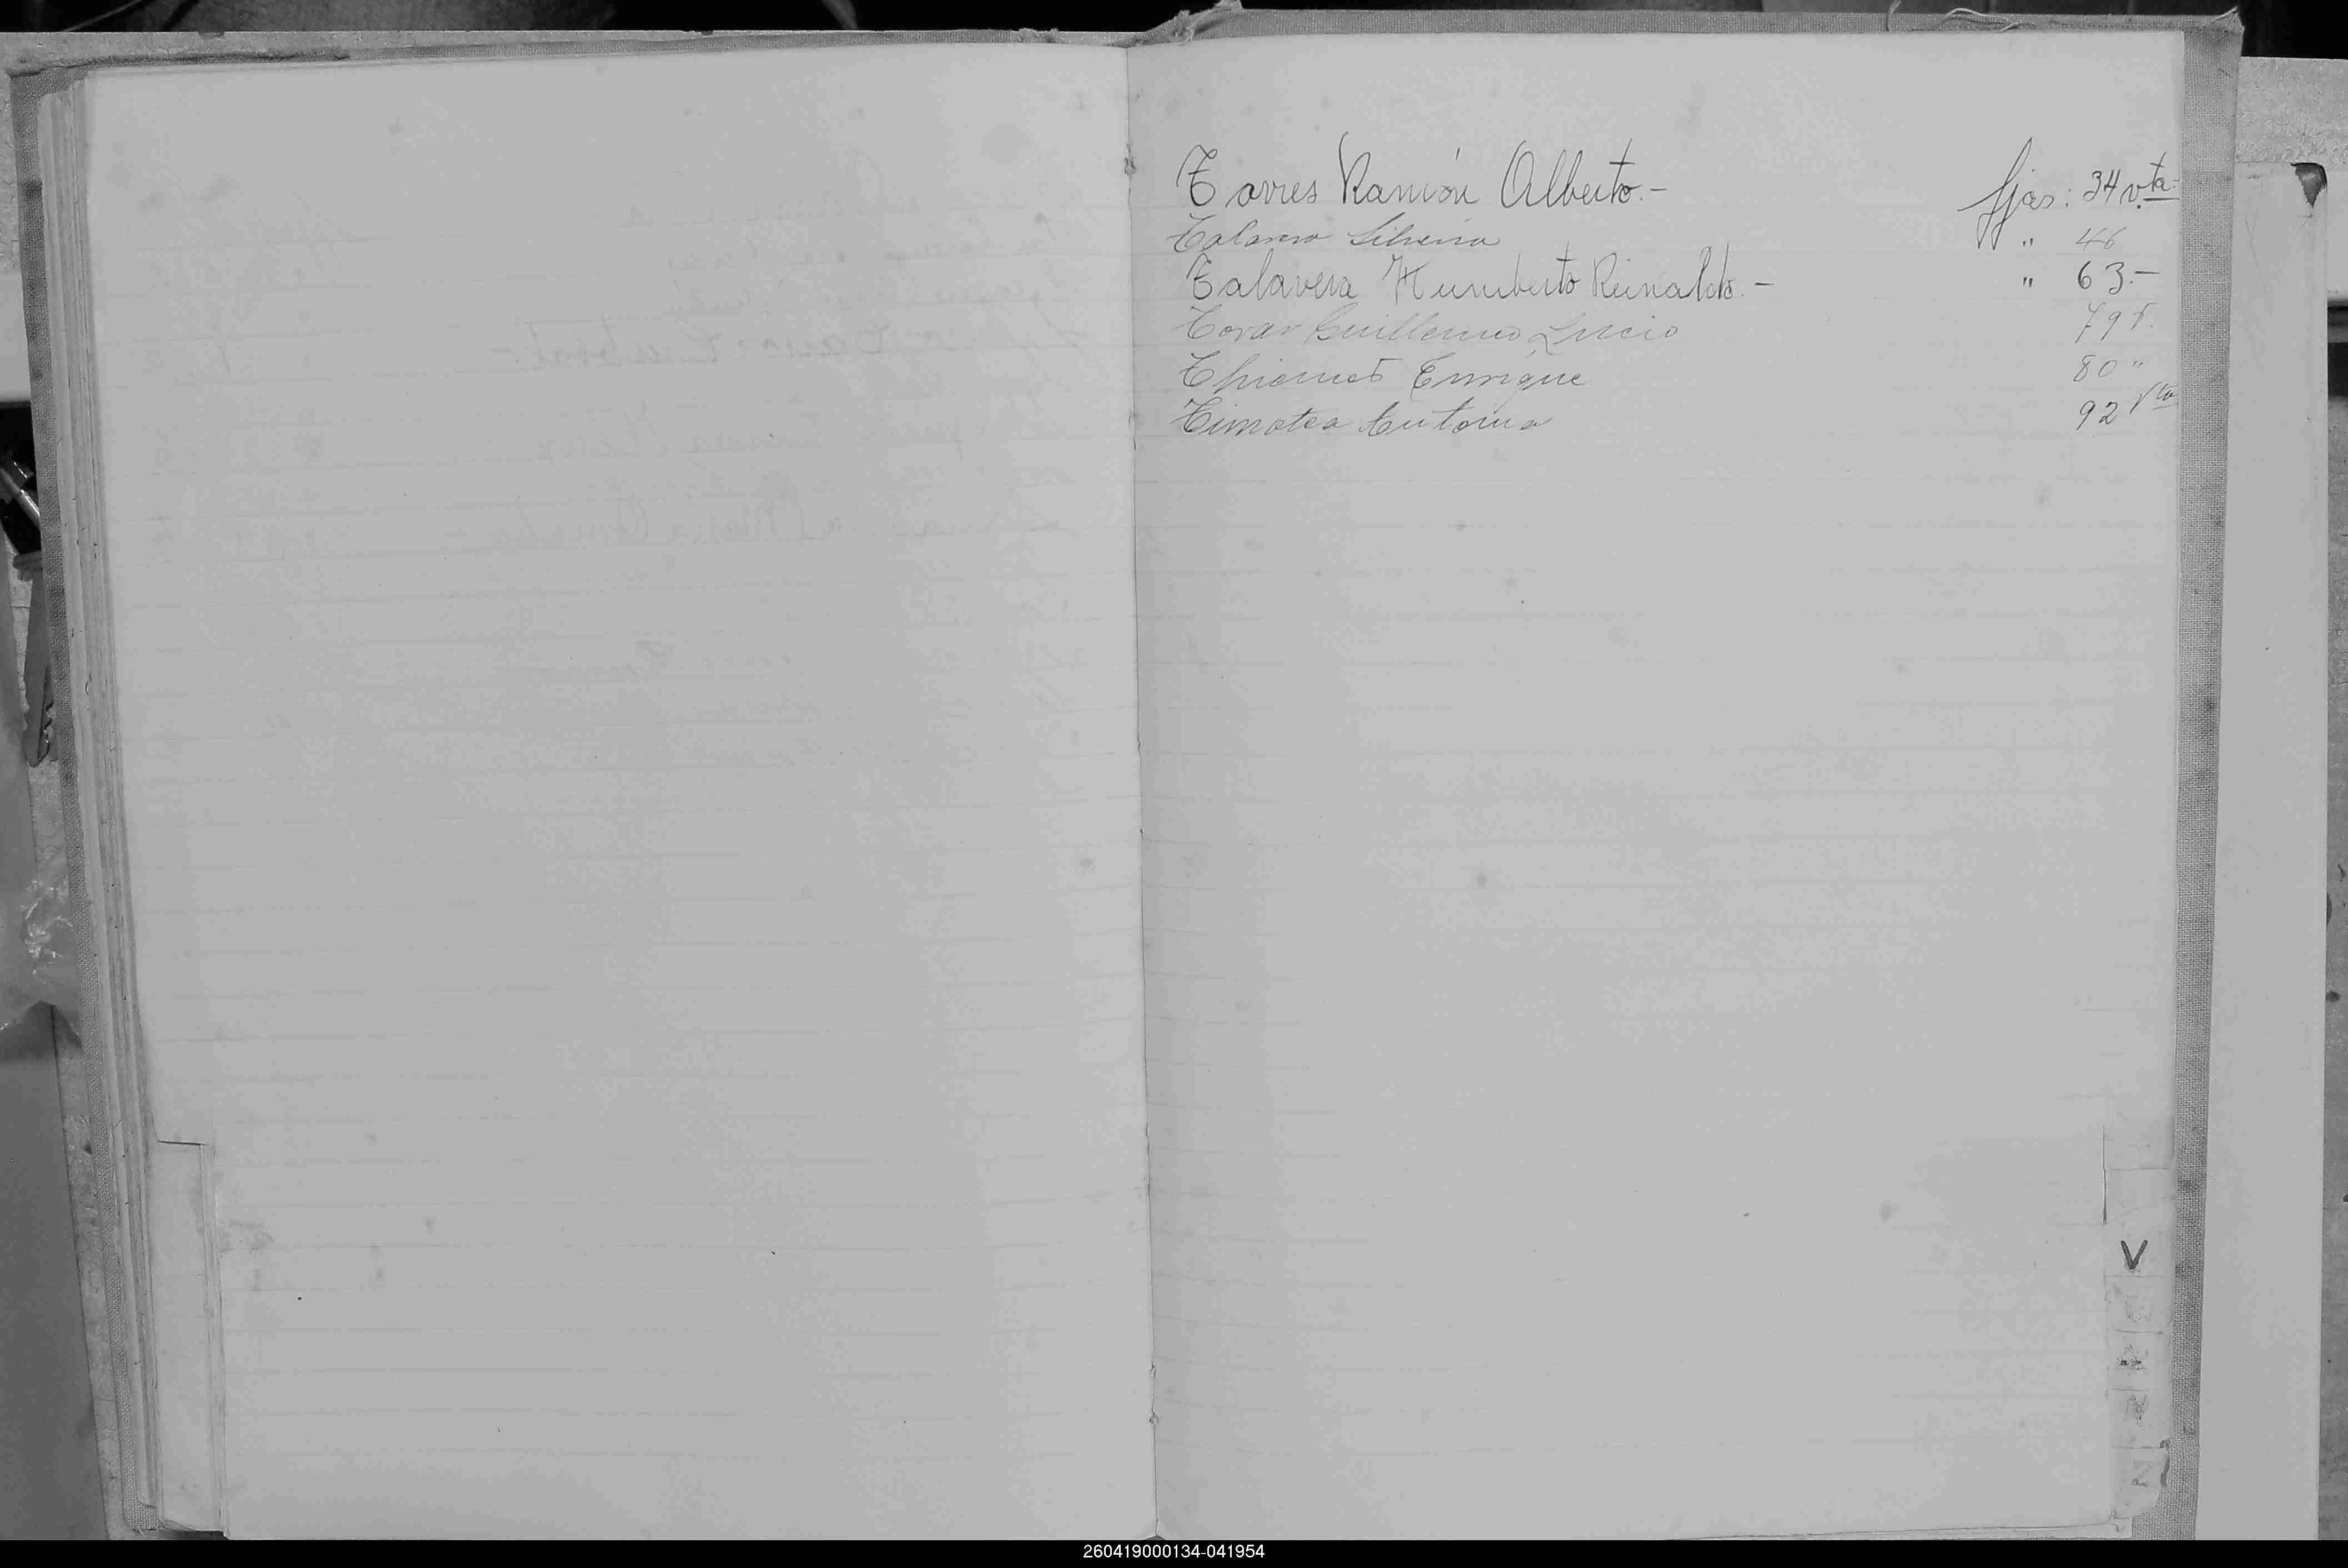 Torres Ramón Alberto.- fjas: 34 vta.
Silveria " 46
Talavera Humberto Reinaldo.- " 63.-
Tovar Guillermo Lucio 79 v.
Thiemet Enrique 80 "
Timotea Antonia 92 vta
V
Z
260419000134-041954